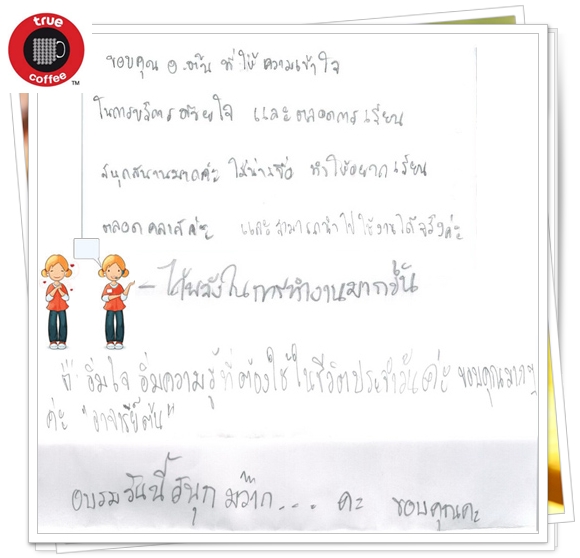 true
coffee
TM
ขอบคุณ อ.ต้น ที่ให้ความเข้าใจ
ในการบริการด้วยใจ และตลอดการเรียน
สนุกสนานมากค่ะ ไม่น่าเบื่อ ทำให้อยากเรียน
ตลอดคลาสค่ะ และสามารถนำไปใช้งานได้จริงค่ะ
- ได้พลังในการทำงานมากขึ้น
อิ่มใจ อิ่มความรู้ที่ต้องใช้ในชีวิตประจำวันค่ะ ขอบคุณมากๆ
ค่ะ "อาจารย์ต้น"
อบรมวันนี้สนุกมว๊าก... คะ ขอบคุณคะ